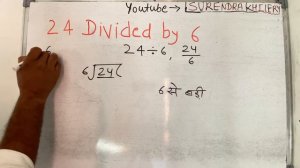 Youtube → SURENDRA KHILERY
24 Divided by 6
6 24÷6, 24/6
6)24(
6 से बड़ी